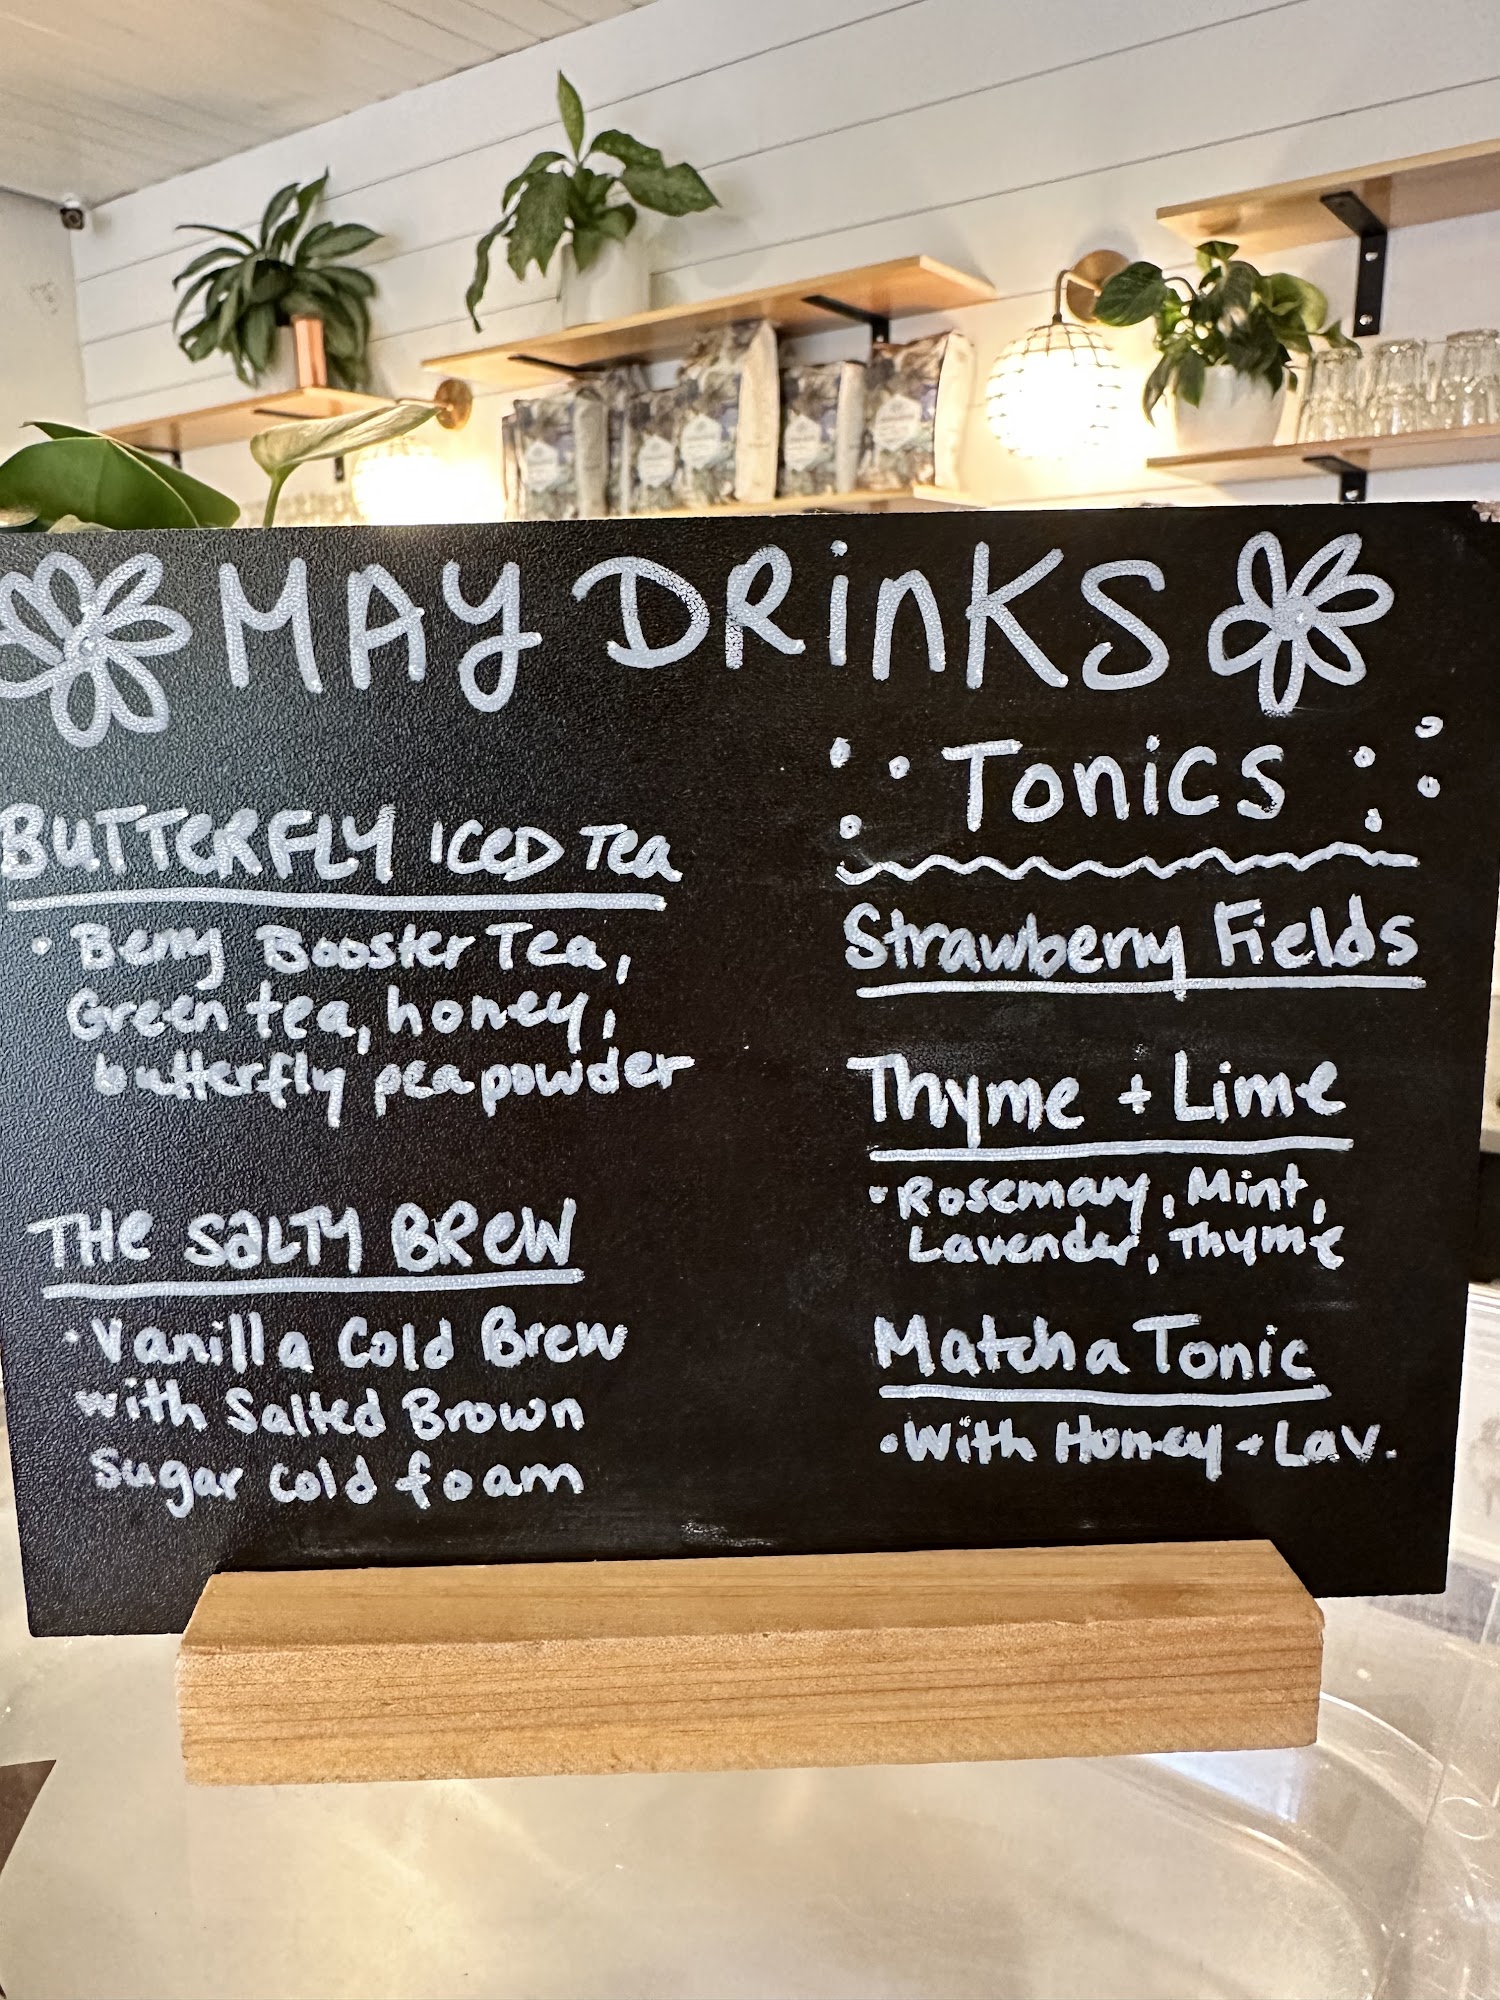 MAY DRiNKS
BUTTERFLY ICED Tea
• Berry Booster Tea,
Green tea, honey,
butterfly pea powder
THE SALTY BREW
• Vanilla Cold Brew
with Salted Brown
Sugar cold foam
Tonics
Strawberry Fields
Thyme + Lime
• Rosemary, Mint,
Lavender, Thyme
Matcha Tonic
• With Honey + Lav.